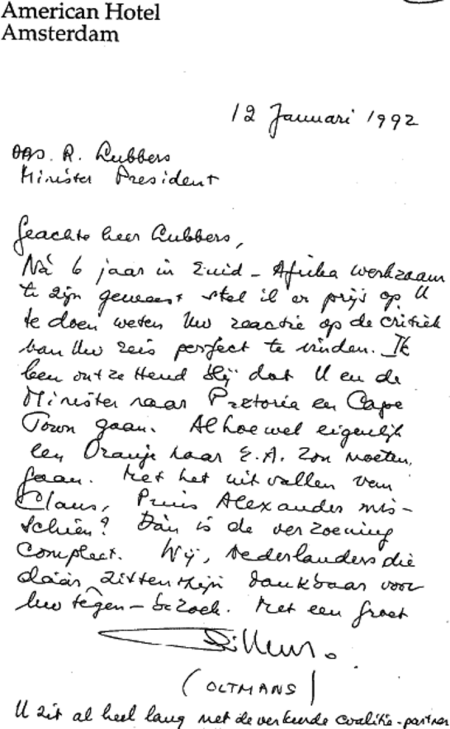 American Hotel
Amsterdam
12 Januari 1992
Drs. R. Lubbers
Minister President
Geachte heer Lubbers,
Nà 6 jaar in Zuid-Afrika werkzaam
te zijn geweest stel ik er prijs op U
te doen weten Uw reactie op de critiek
van Uw reis perfect te vinden. Ik
ben ontzettend blij dat U en de
Minister naar Pretoria en Cape
Town gaan. Alhoewel eigenlijk
een Oranje naar Z.A. zou moeten
gaan. Met het uitvallen van
Claus, Prins Alexander mis-
schien? Dàn is de verzoening
compleet. Wij, Nederlanders die
dáár zitten zijn dankbaar voor
Uw tegen-bezoek. Met een groet
Willem.
(OLTMANS)
U zit al heel lang met de verkeerde coalitie-partner